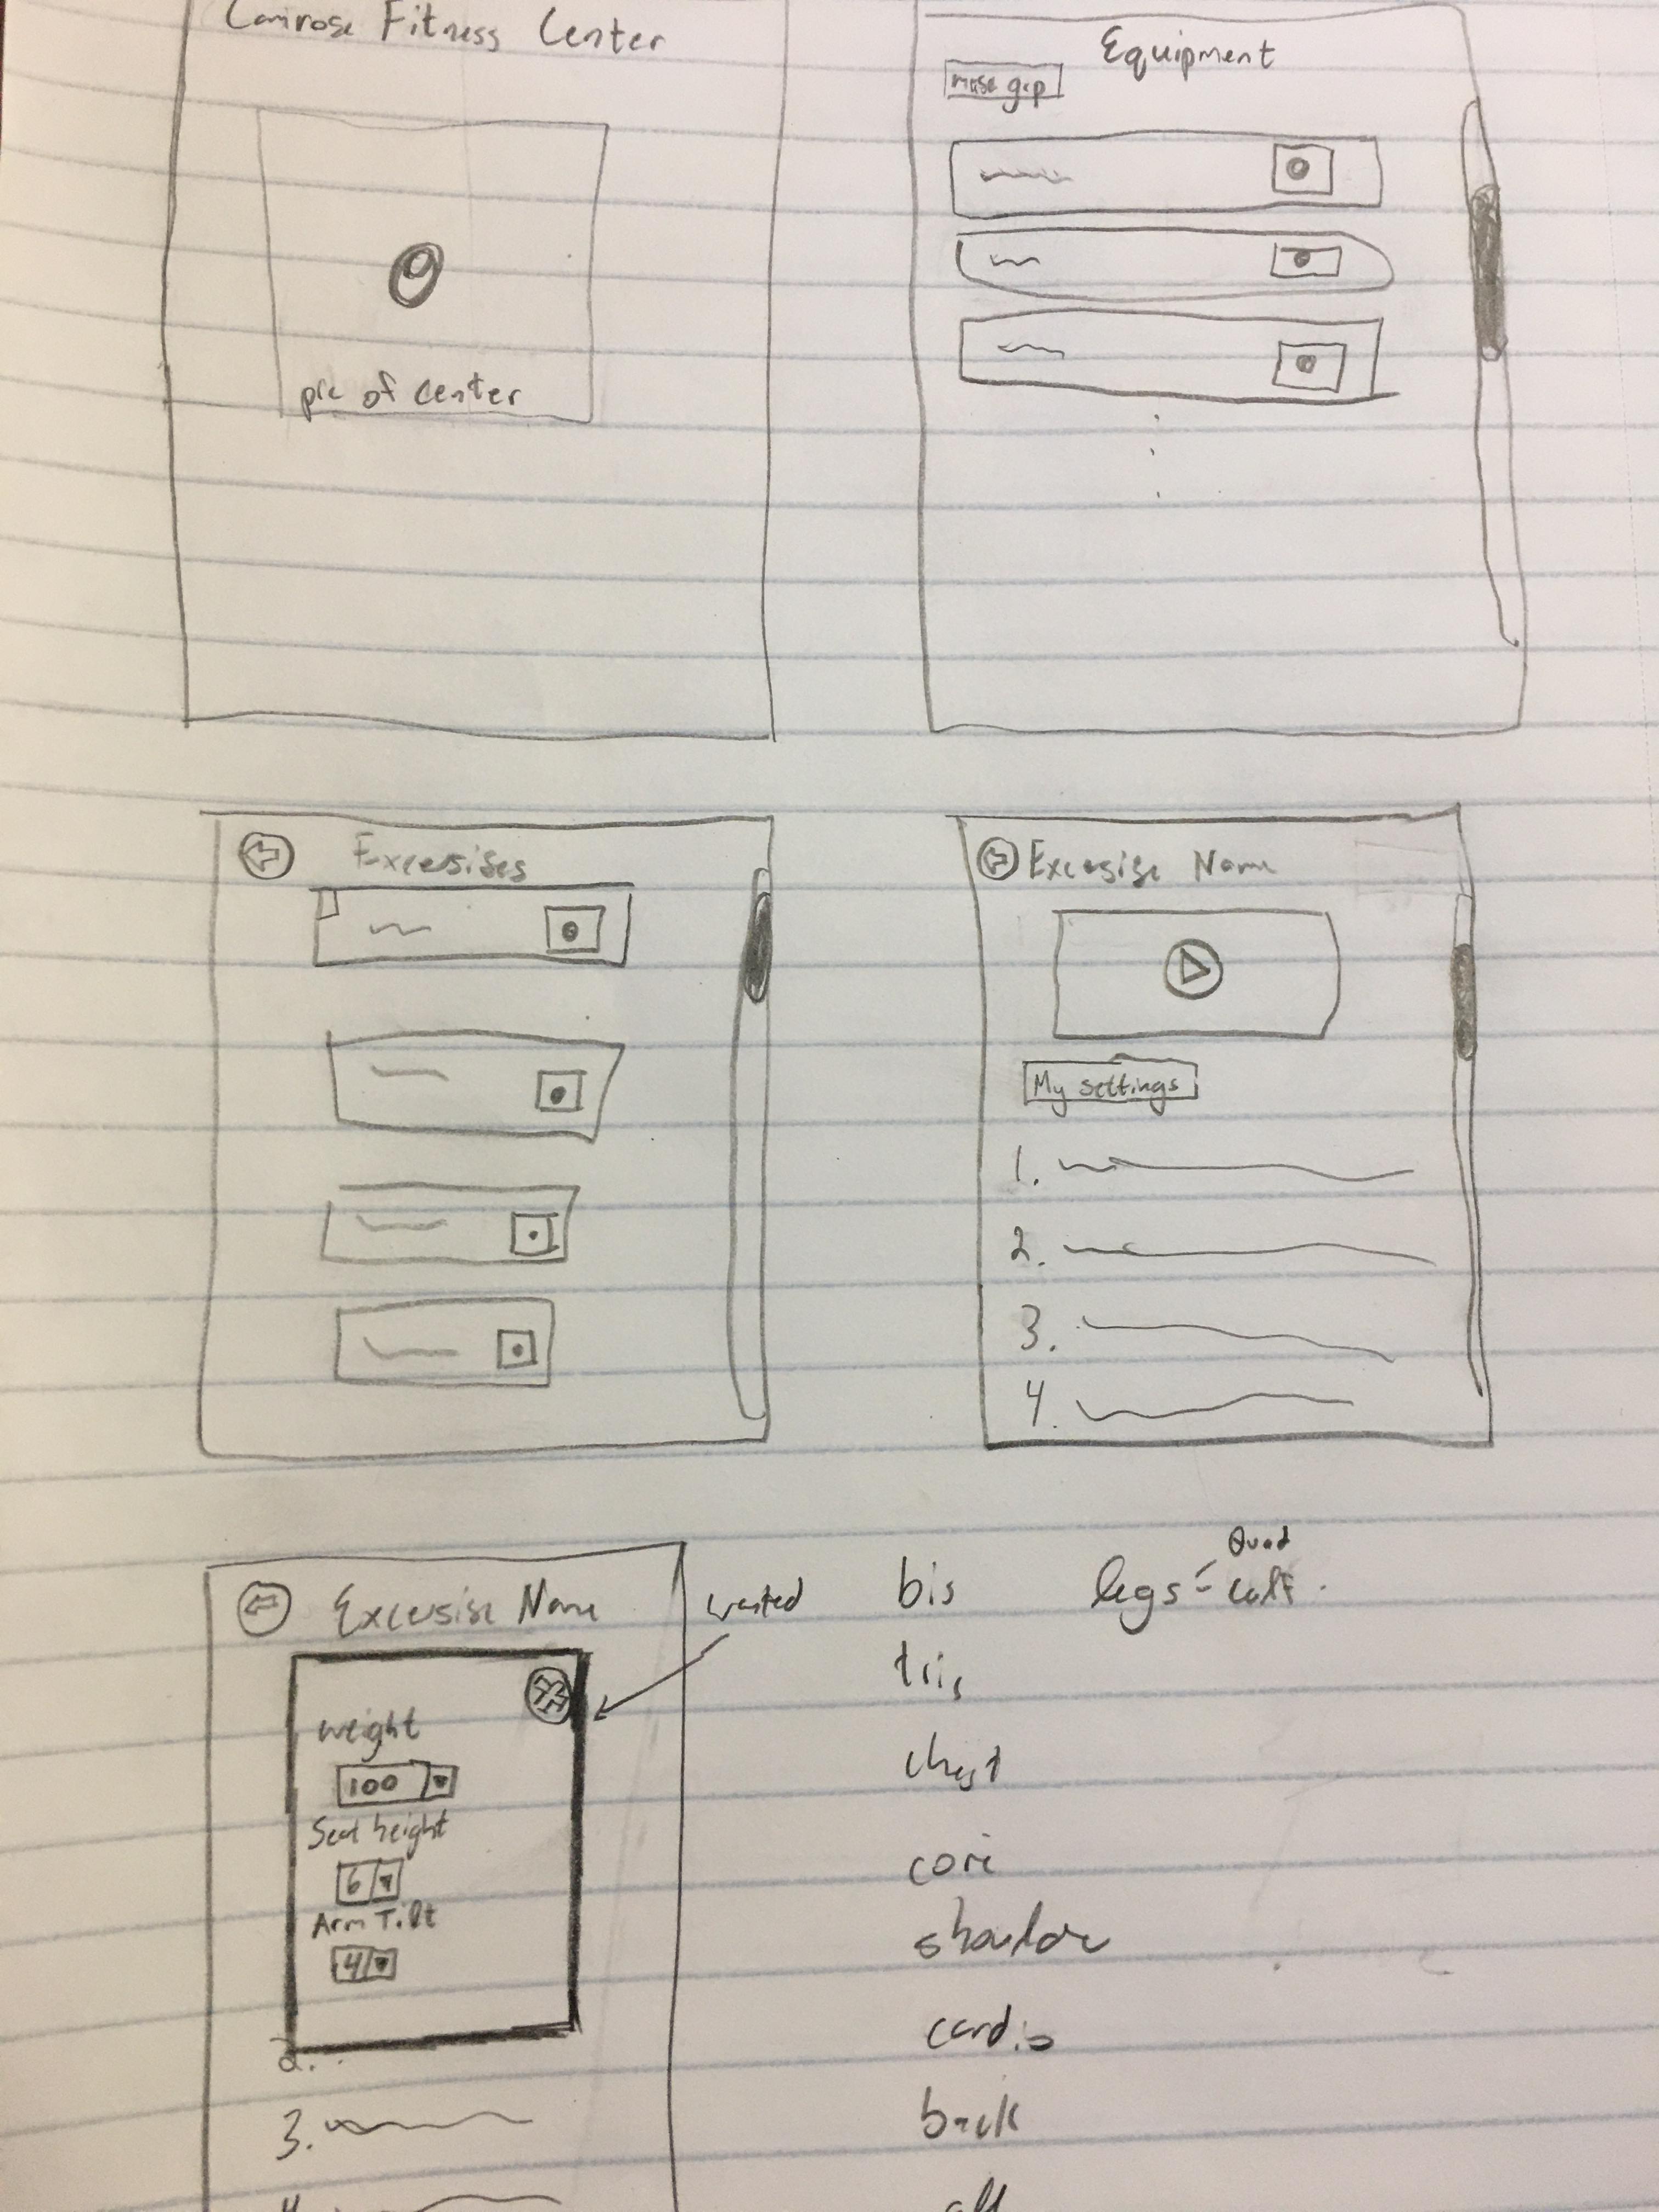 Camrose Fitness Center
pic of center
Equipment
musc grp
Excersises
Excersise Name
My settings
1.
2.
3.
4.
Excersise Name
weight
100
Seat height
6
Arm Tilt
4
2.
3.
4.
bis
tris
chest
core
shoulder
cardio
back
all
legs - Quad
calf.